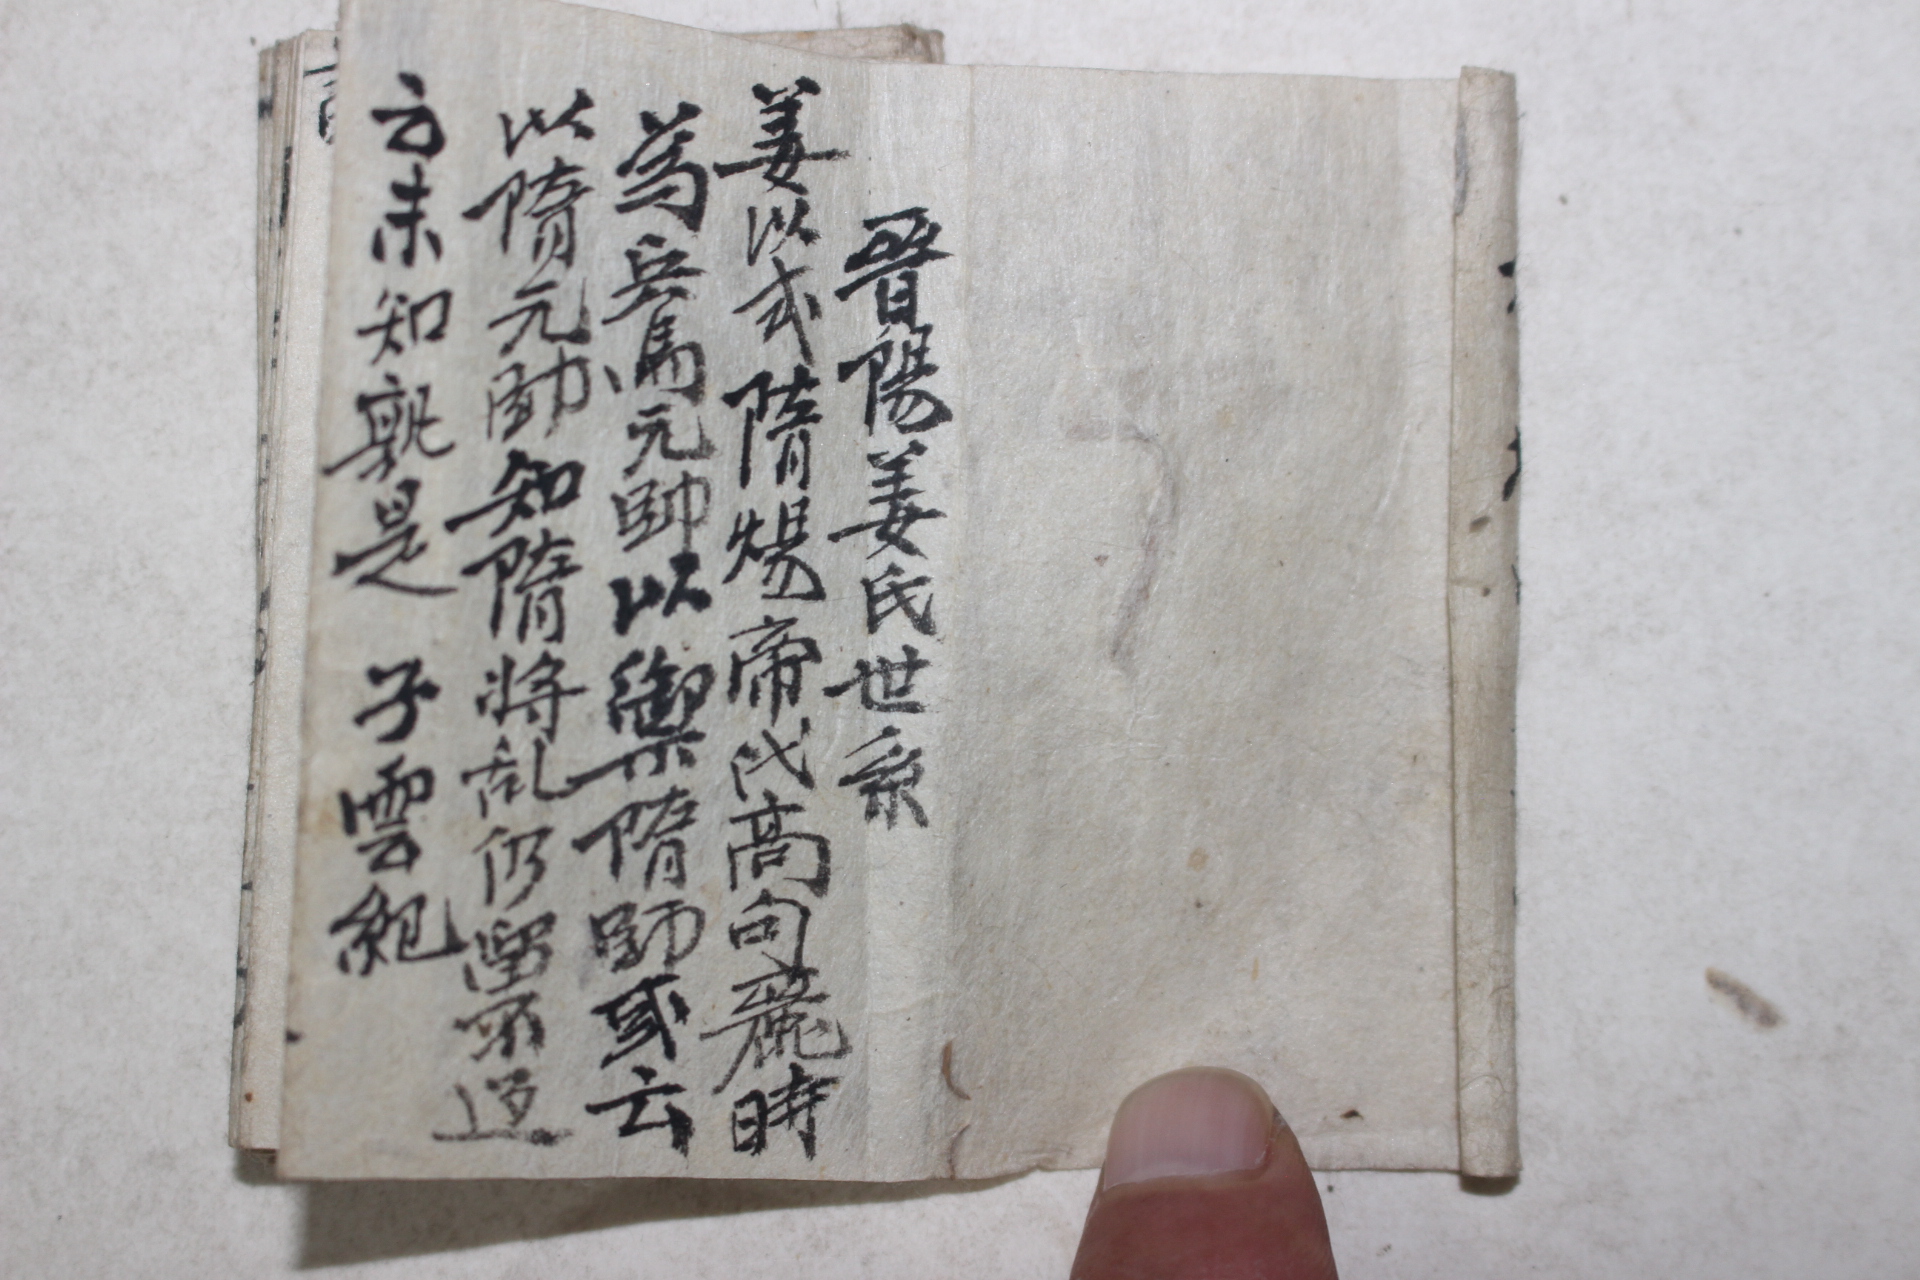 晋陽姜氏世系
姜以式 隋煬帝伐高句麗時
為兵馬元帥以禦隋師或云
以隋元帥知隋將乱仍留不
云未知孰是 子雲紀